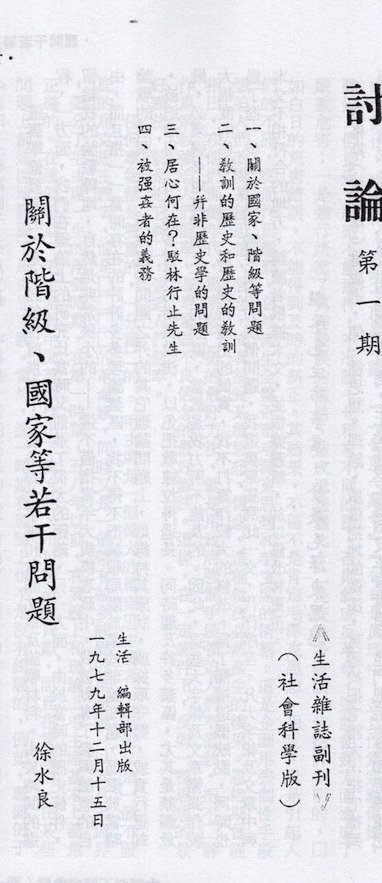 討論 第一期
《生活雜誌副刊》
（社會科學版）
一、關於國家、階級等問題
二、教訓的歷史和歷史的教訓
——并非歷史學的問題
三、居心何在？駁林行止先生
四、被强姦者的義務
生活 編輯部出版
一九七九年十二月十五日
關於階級、國家等若干問題
徐水良